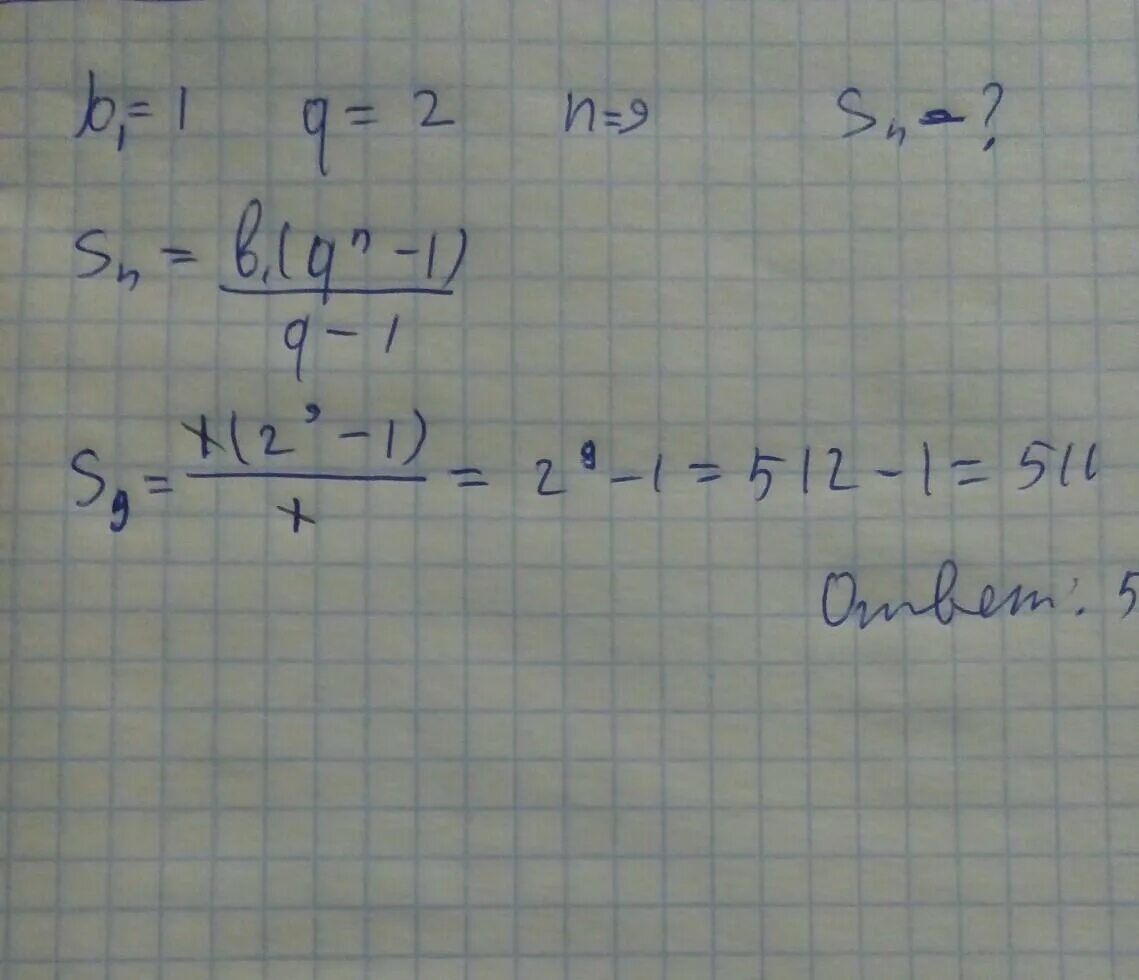 b₁ = 1 q = 2 n = 9 Sₙ - ?
Sₙ = b₁(qⁿ - 1) / q - 1
S₉ = 1(2⁹ - 1) / 1 = 2⁹ - 1 = 512 - 1 = 511
Ответ: 5